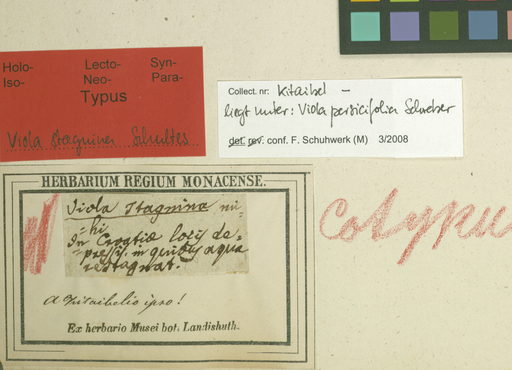 Holo- Lecto- Syn-
Iso- Neo- Para-
Typus
Viola stagnina Schultes
Collect. nr: Kitaibel –
liegt unter: Viola persicifolia Schreber
det. rev. conf. F. Schuhwerk (M) 3/2008
HERBARIUM REGIUM MONACENSE.
Viola stagnina mi=
=hi
In Croatiæ locis de=
=pressis, in quibus aqua
restagnat.
a Kitaibelio ipso!
Ex herbario Musei bot. Landishuth.
Cotypu